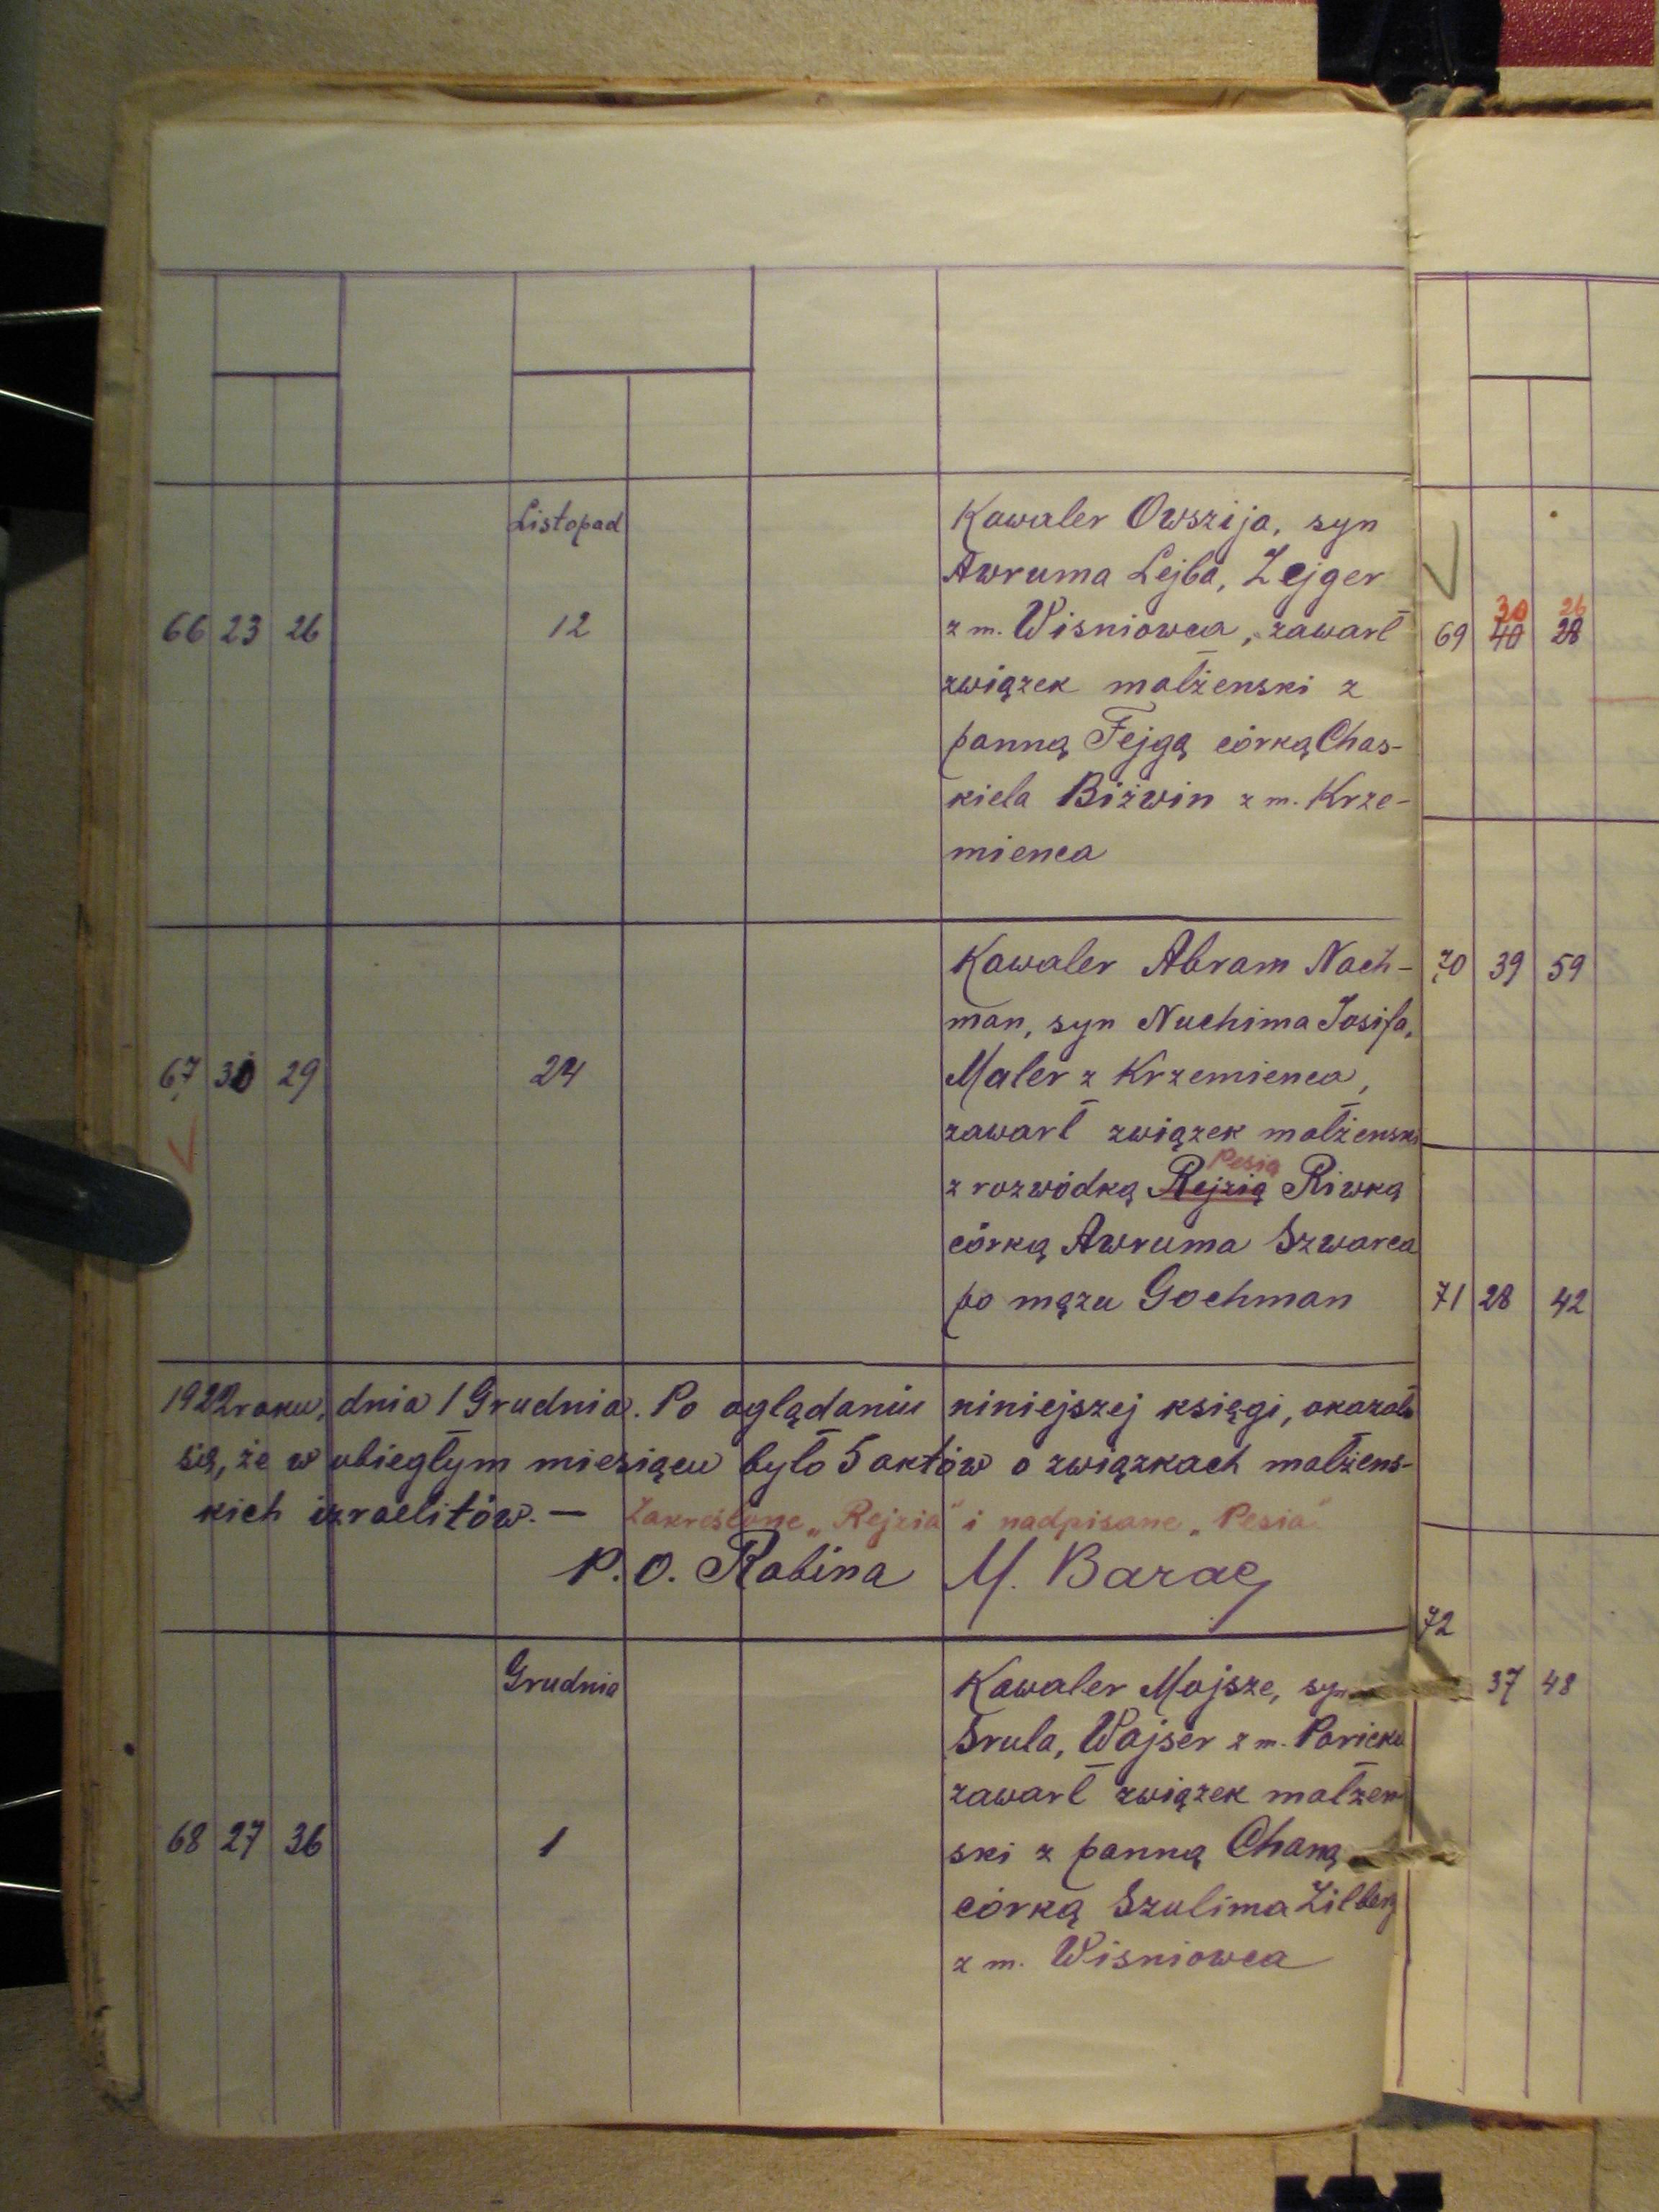 Listopad
66 23 26 12
Kawaler Owszija, syn
Awruma Lejba, Zejger
z m. Wisniowca, zawarł
związek małżenski z
panną Fejgą córką Chas-
kiela Biżwin z m. Krze-
mienca
67 30 29 24
Kawaler Abram Nach-
man, syn Nuchima Josifa,
Maler z Krzemienca,
zawarł związek małżenski
Pesią
z rozwódką Rejzią Riwką
córką Awruma Szwarca
po mązu Gochman
1922 roku, dnia 1 Grudnia. Po oglądaniu niniejszej księgi, okazało
się, że w ubiegłym miesiącu było 5 aktów o związkach małżens-
kich izraelitów. — Zakreślone „Rejzia" i nadpisane „Pesia".
P.O. Rabina M. Barac
Grudnia
68 27 36 1
Kawaler Mojsze, syn
Srula, Wajser z m. Paricku
zawarł związek małżen-
ski z panną Chaną
córką Szulima Zilberg
z m. Wisniowca
30 26
69 40 28
70 39 59
71 28 42
72
37 48